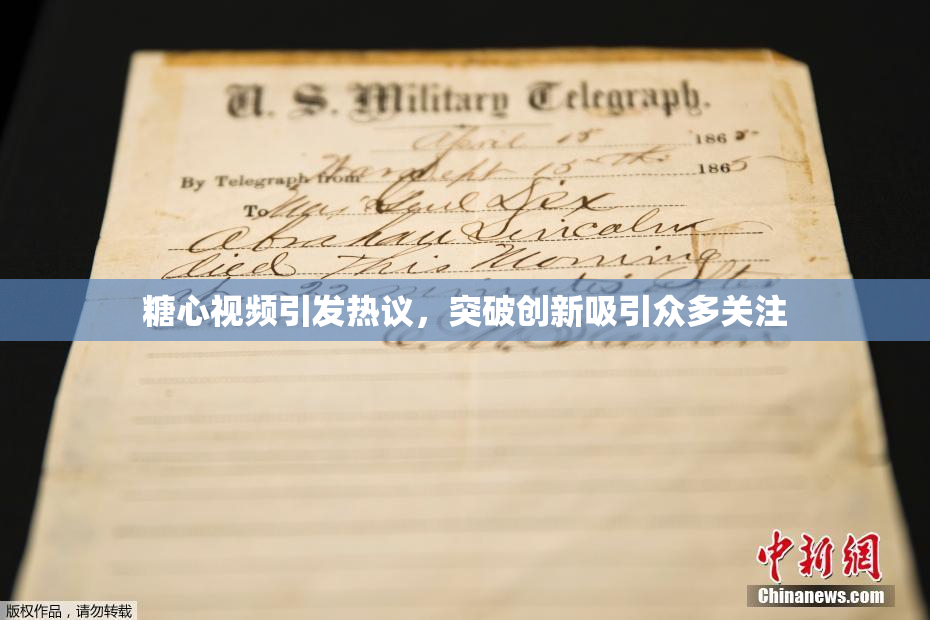 U. S. Military Telegraph.
April 15 1865
By Telegraph from War Dept 15th 1865
To Maj Genl Dix
Abraham Lincoln
died This Morning
22 minutes after
糖心视频引发热议，突破创新吸引众多关注
中新網
Chinanews.com
版权作品，请勿转载